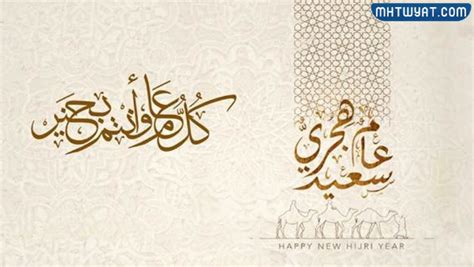 MHTWYAT.COM
كل عام وأنتم بخير
عام هجري
سعيد
HAPPY NEW HIJRI YEAR